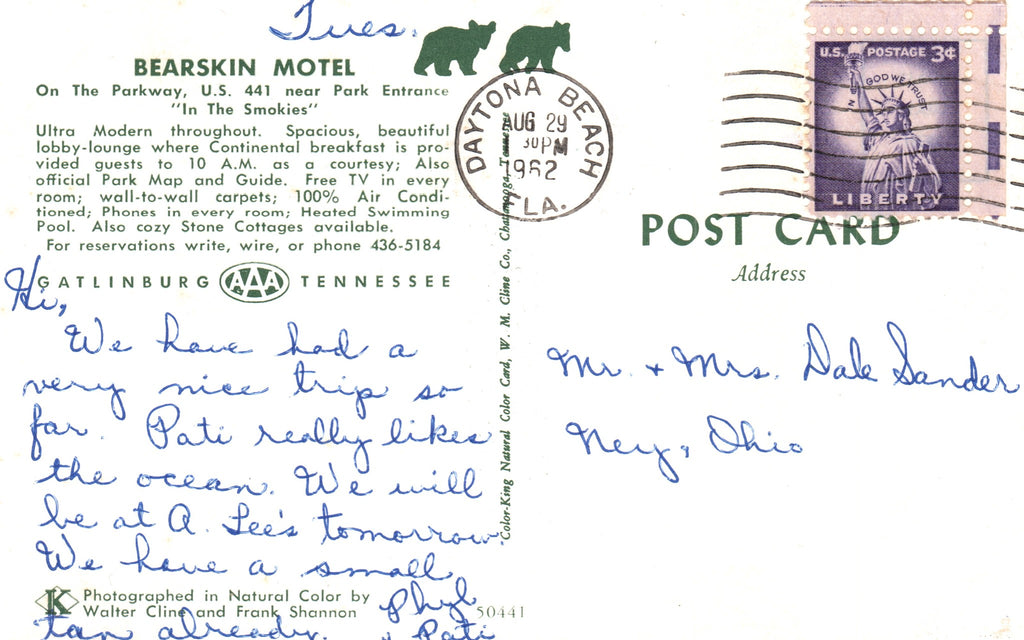 Tues.
BEARSKIN MOTEL
On The Parkway, U.S. 441 near Park Entrance
"In The Smokies"
Ultra Modern throughout. Spacious, beautiful
lobby-lounge where Continental breakfast is pro-
vided guests to 10 A.M. as a courtesy; Also
official Park Map and Guide. Free TV in every
room; wall-to-wall carpets; 100% Air Condi-
tioned; Phones in every room; Heated Swimming
Pool. Also cozy Stone Cottages available.
For reservations write, wire, or phone 436-5184
GATLINBURG AAA TENNESSEE
Hi,
We have had a
very nice trip so
far. Pati really likes
the ocean. We will
be at A. Lee's tomorrow.
We have a small
tan already.
Phyl
& Pati
K
Photographed in Natural Color by
Walter Cline and Frank Shannon
50441
Color-King Natural Color Card, W. M. Cline Co., Chattanooga, Tennessee
DAYTONA BEACH
AUG 29
30 PM
1962
LA.
U.S. POSTAGE 3¢
IN GOD WE TRUST
LIBERTY
POST CARD
Address
Mr. + Mrs. Dale Sander
Ney, Ohio